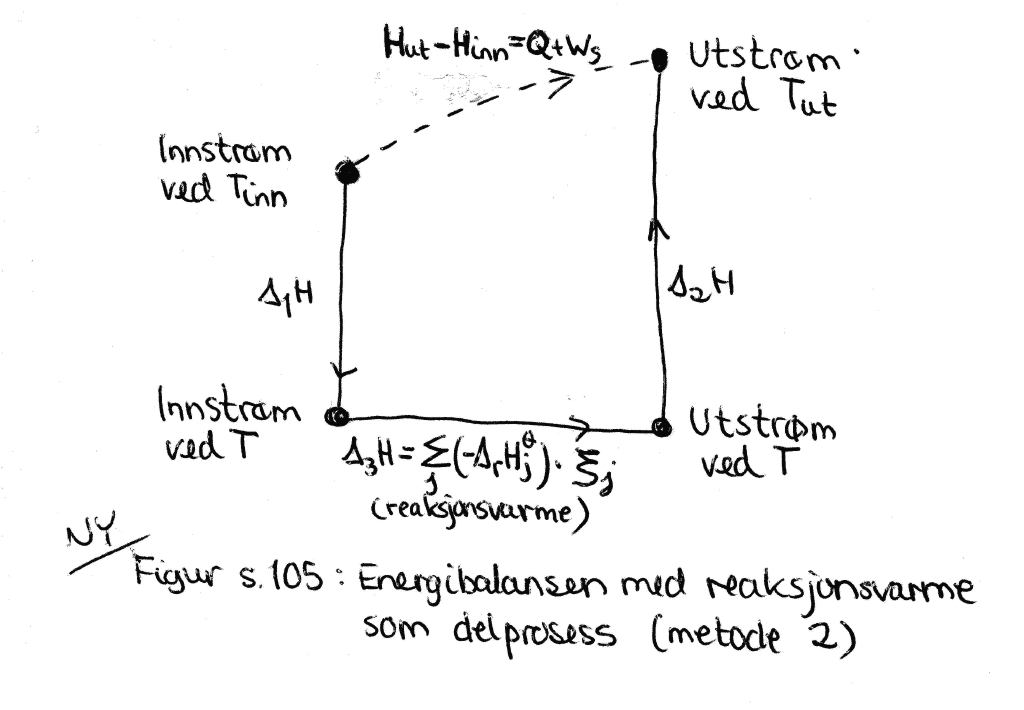 Hut-Hinn=Q+Ws
Utstrøm
ved Tut
Innstrøm
ved Tinn
Δ₁H
Δ₂H
Innstrøm
ved T
Utstrøm
ved T
Δ₃H=∑j(-ΔrHj^θ)·ξj
(reaksjonsvarme)
NY
Figur s.105: Energibalansen med reaksjonsvarme
som delprosess (metode 2)